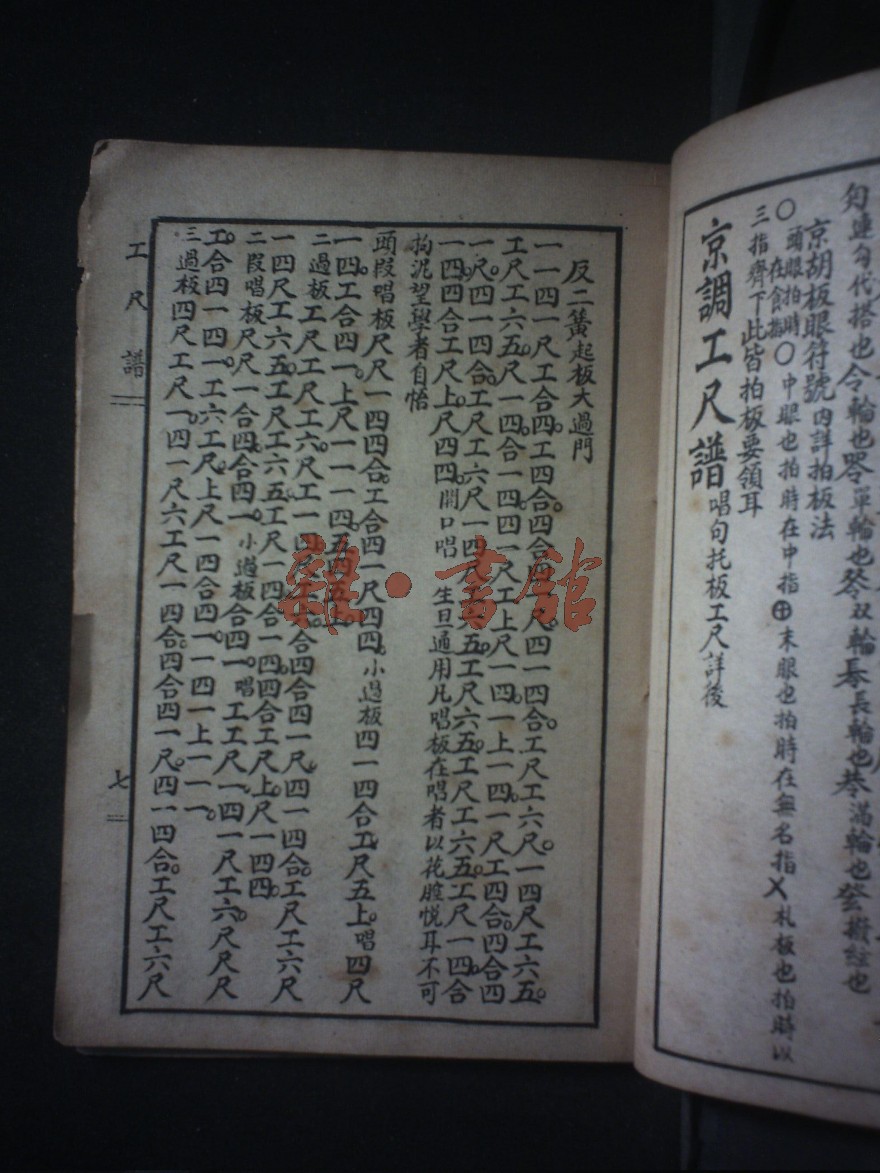 匀連勾代搭也令輪也
單輪也
双輪
長輪也
滿輪也
京胡板眼符號內詳拍板法
○頭眼拍時在食指○中眼也拍時在中指⊕末眼也拍時在無名指㐅札板也拍時以
三指齊下此皆拍板要領耳
京調工尺譜 唱句托板工尺詳後
反二簧起板大過門
一一四一尺工合四工四合四合四一尺四一四合工尺工六尺一四尺工六五
工尺工六五尺一四合一四四一尺工上尺一四一上一四一尺工四合四合四
一尺四一四合工尺工六尺一四尺工六五工尺六五工尺工六五工尺一四合
一四四合工尺上尺四四開口唱 生旦通用凡唱板在唱者以花腔悅耳不可
拘泥望學者自悟
頭段唱板尺尺一四四合工合四一尺四四小過板四一四合工尺五上唱四尺
一四工合四一上尺一一一四
二過板工尺工尺工六尺工一四尺
合四合四一尺四一四合工尺工六尺
一四尺工六五工尺工六五工尺一四合一四四合工尺上尺一四四
二段唱板尺尺一合四合四一小過板合四一唱工工尺一四一尺工六尺尺尺
工合四一四一工六工尺上尺一四合四一一四一上一一一
三過板四尺工尺一四一尺六工尺一四合四合四一尺四一四合工尺工六尺
工尺譜
七
雜·書館